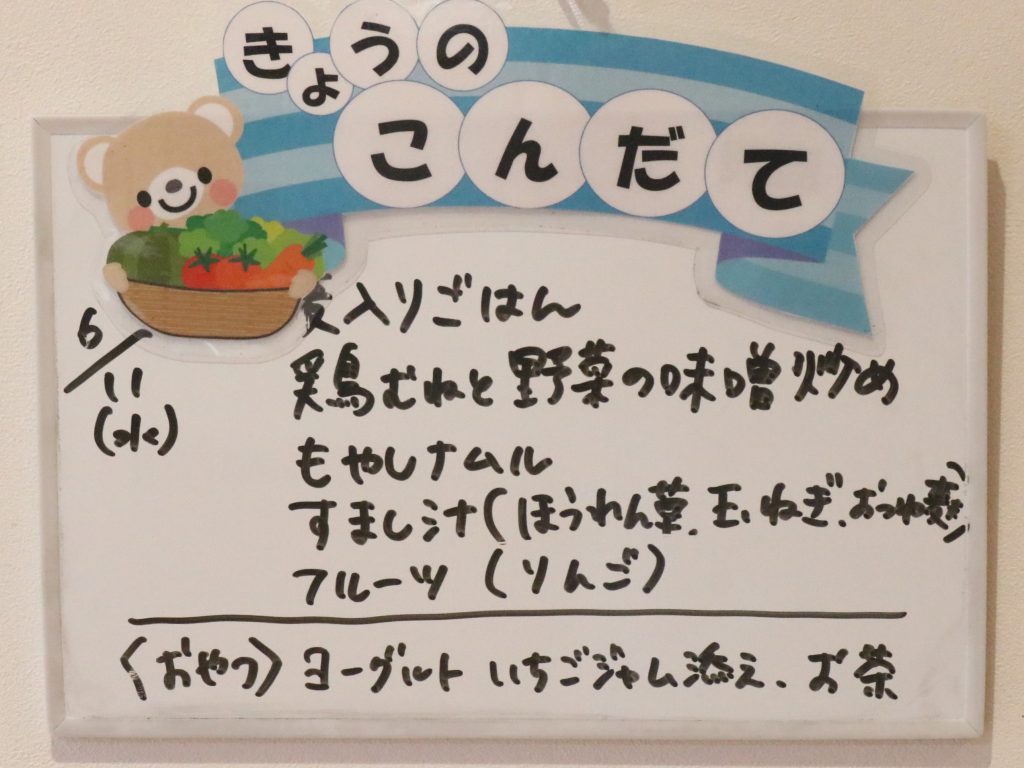 きょうの
こんだて
麦入りごはん
6/11
(水)
鶏むねと野菜の味噌炒め
もやしナムル
すまし汁(ほうれん草、玉ねぎ、おつゆ麩)
フルーツ(りんご)
〈おやつ〉ヨーグルト いちごジャム添え、お茶